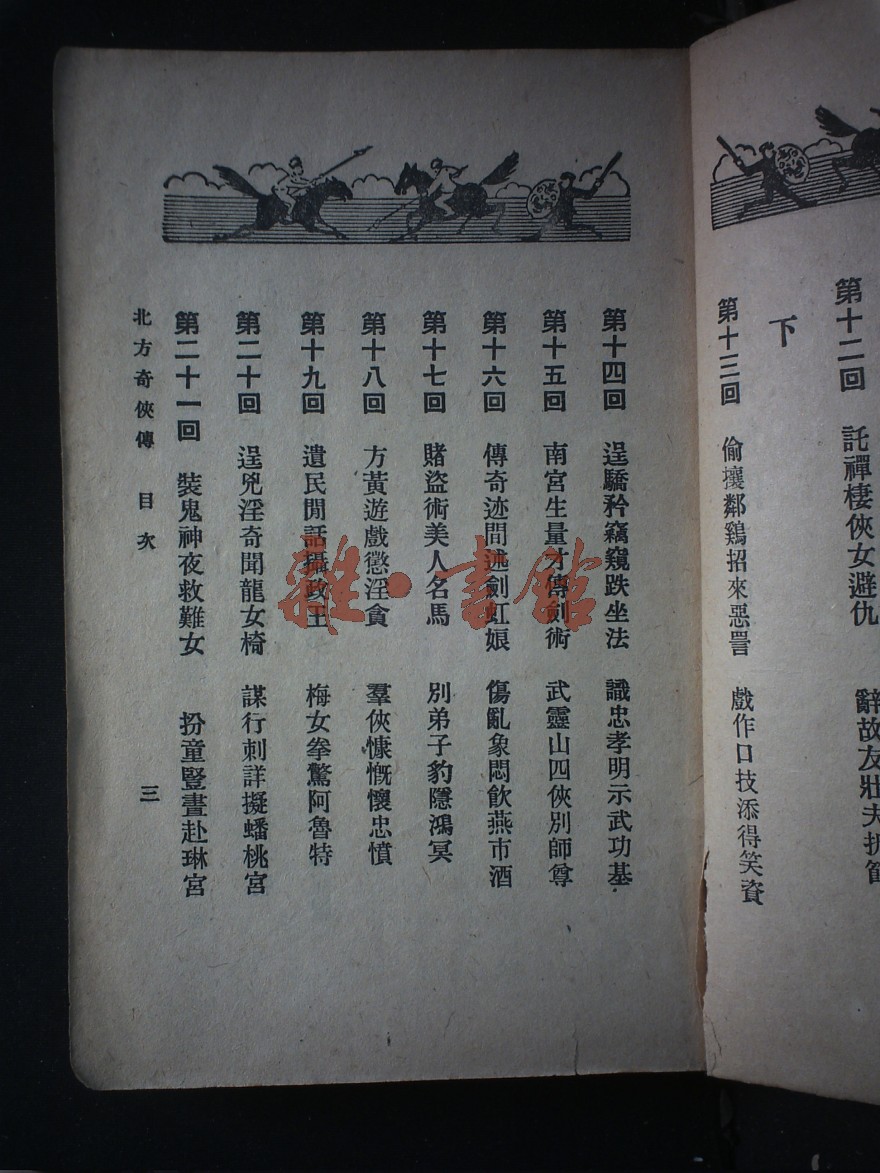 第十二回　託禪棲俠女避仇　辭故友壯夫折
下
第十三回　偷攘鄰鷄招來惡詈　戲作口技添得笑資
第十四回　逞驕矜竊窺跌坐法　識忠孝明示武功基
第十五回　南宮生量才傳劍術　武靈山四俠別師尊
第十六回　傳奇迹間述劍虹娘　傷亂象悶飲燕市酒
第十七回　賭盜術美人名馬　別弟子豹隱鴻冥
第十八回　方黃遊戲懲淫貪　羣俠慷慨懷忠憤
第十九回　遺民閒話攝政王　梅女拳驚阿魯特
第二十回　逞兇淫奇聞龍女椅　謀行刺詳擬蟠桃宮
第二十一回　裝鬼神夜救難女　扮童豎晝赴琳宮
北方奇俠傳　目次　三
雜·書館